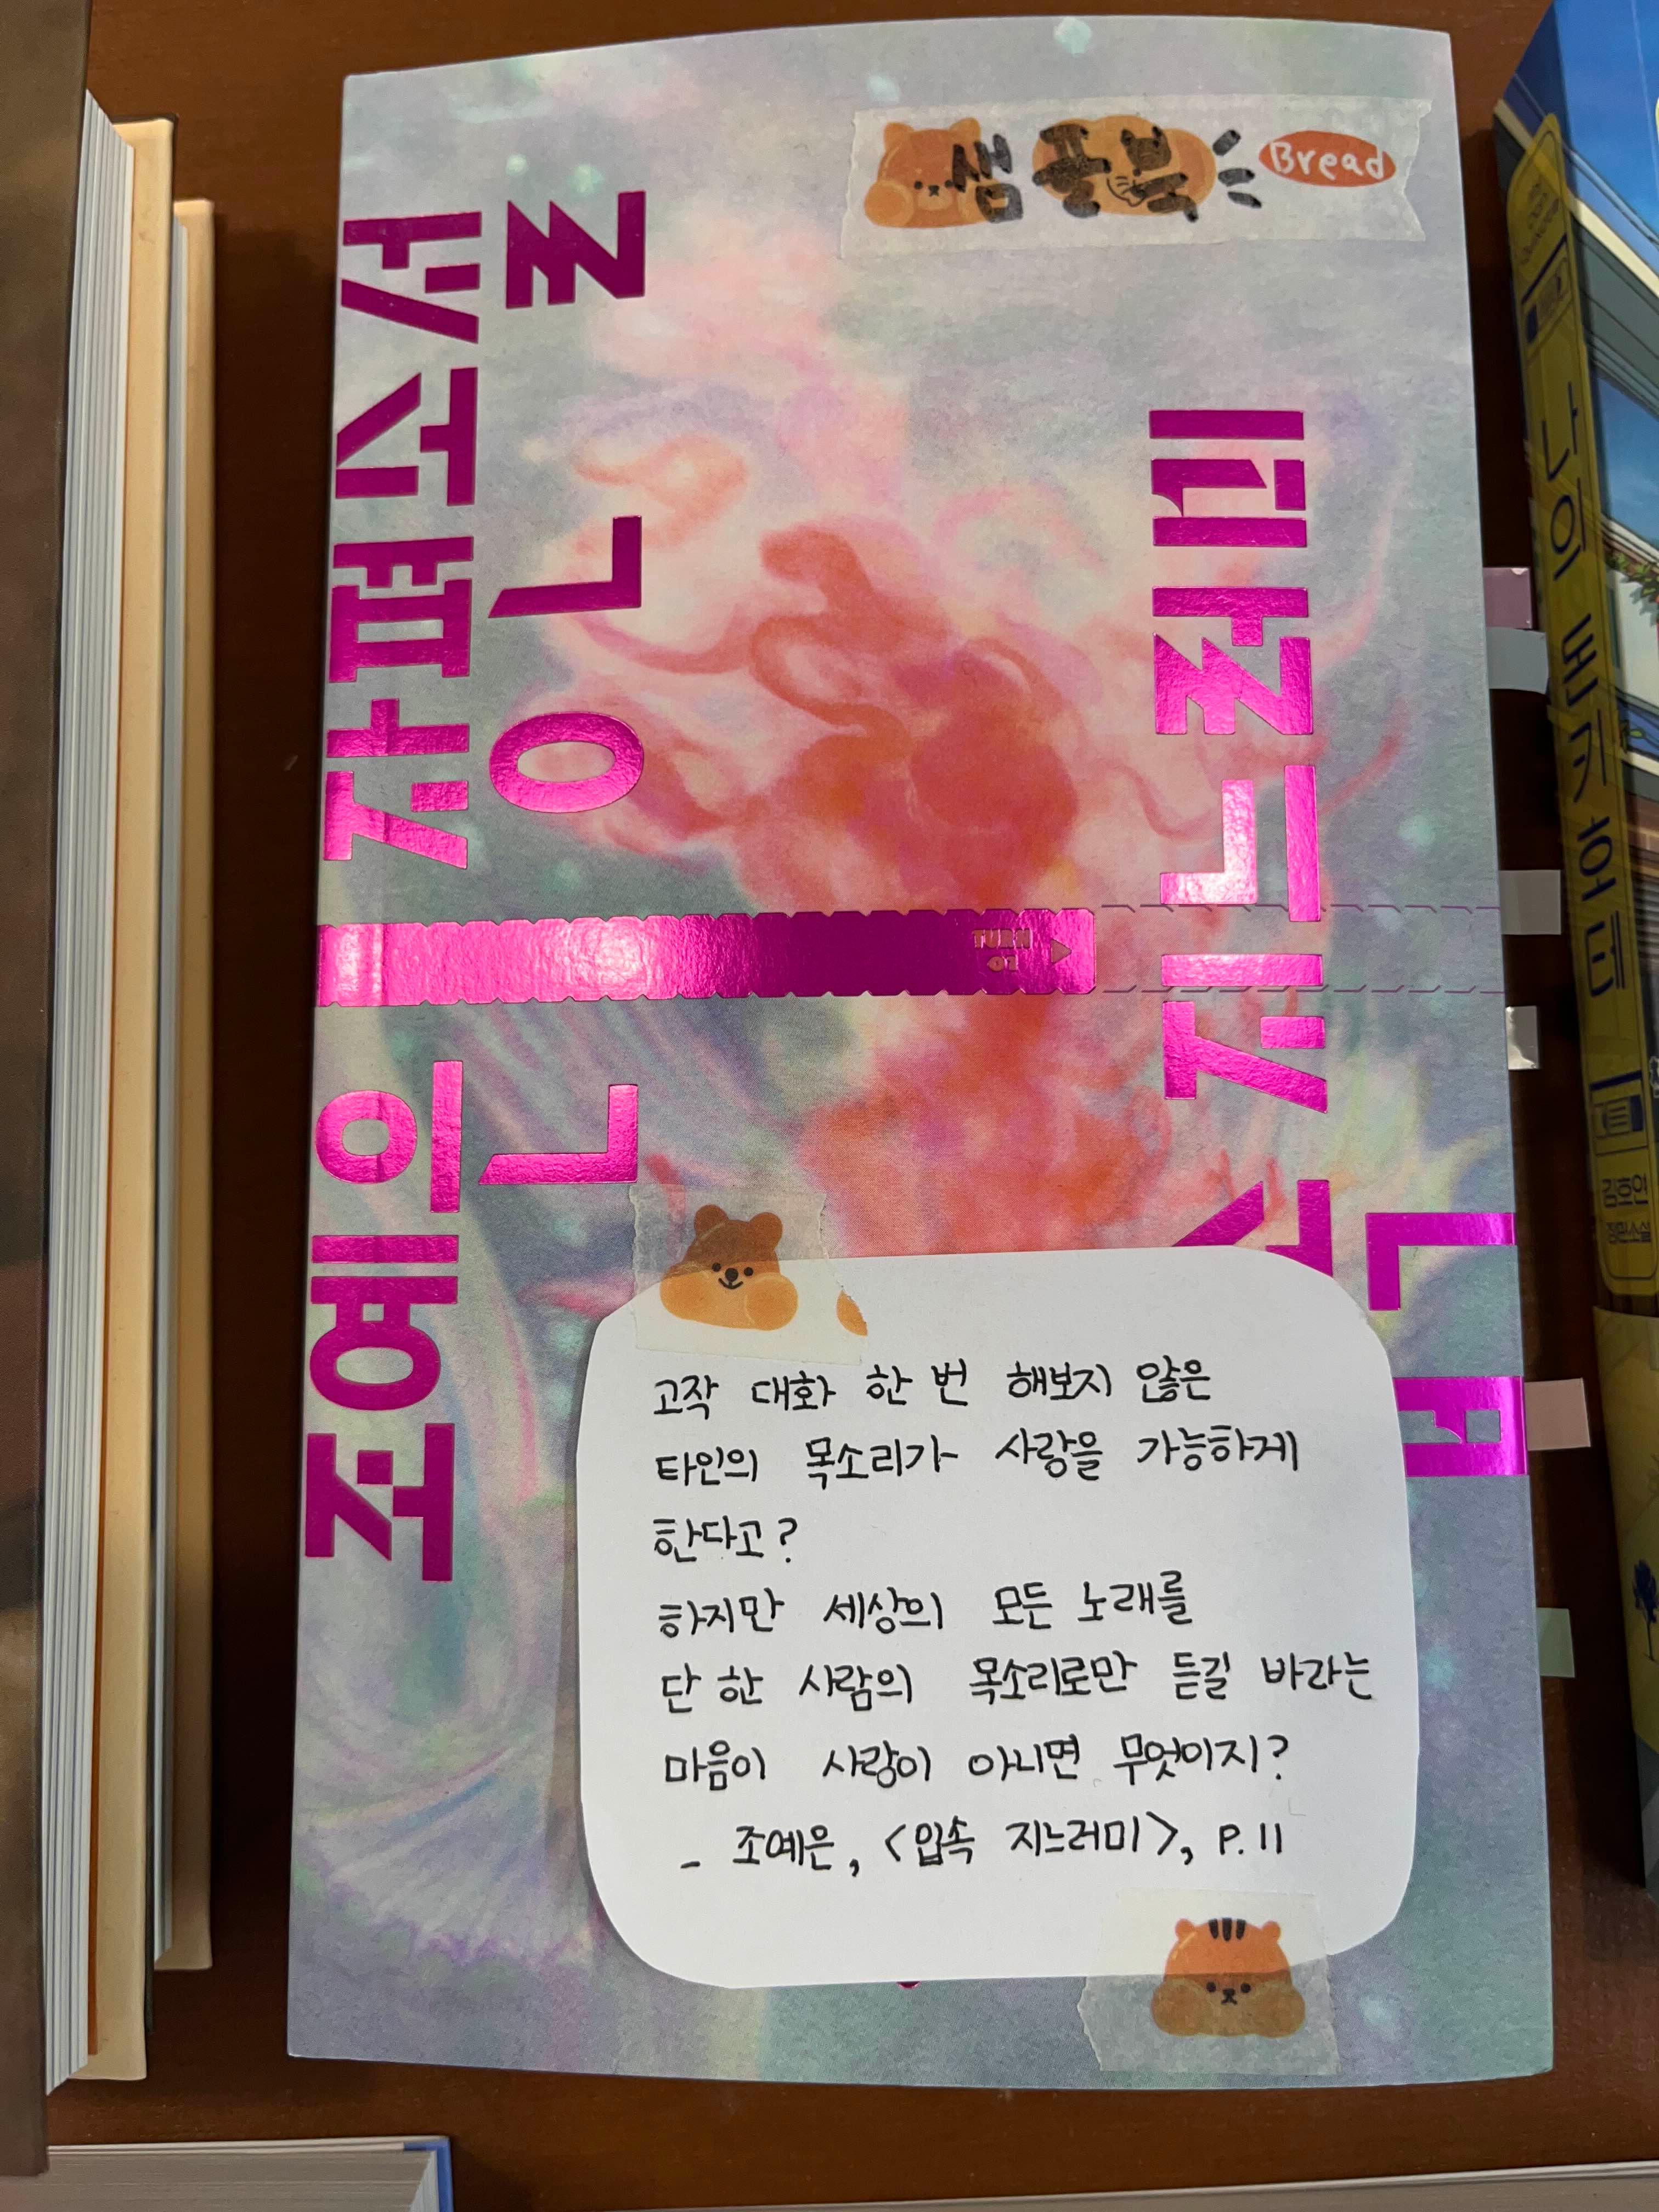 샘플북
Bread
조예은 장편소설
TURN
02
입속 지느러미
고작 대화 한 번 해보지 않은
타인의 목소리가 사랑을 가능하게
한다고?
하지만 세상의 모든 노래를
단 한 사람의 목소리로만 듣길 바라는
마음이 사랑이 아니면 무엇이지?
- 조예은, <입속 지느러미>, P.11
나의 돈키호테
김호연
장편소설